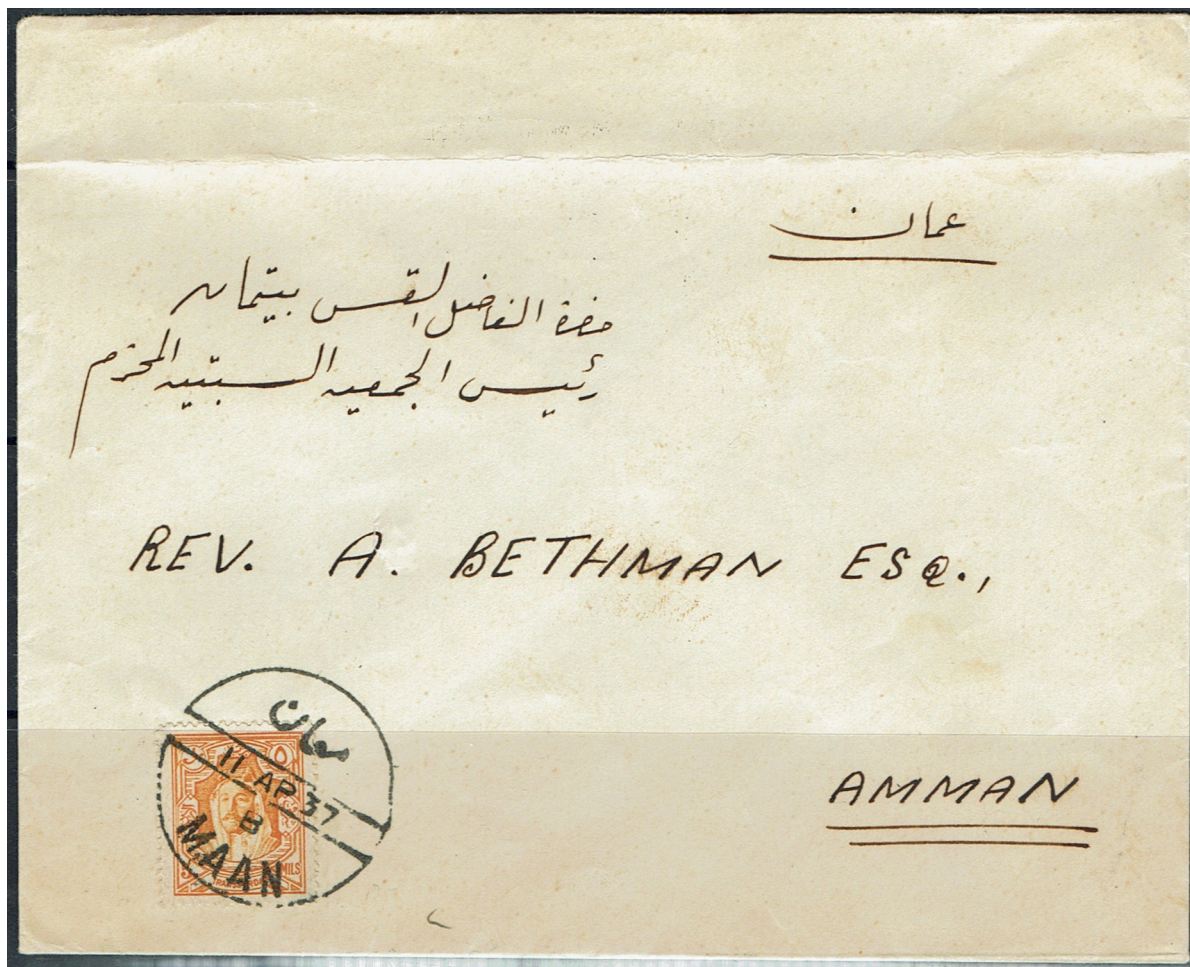 عمان
حضرة الفاضل القس بيتمان
رئيس الجمعيه السبتيه المحترم
REV. A. BETHMAN ESQ.,
معان
11 AP 37
B
MAAN
٥
MILS
AMMAN